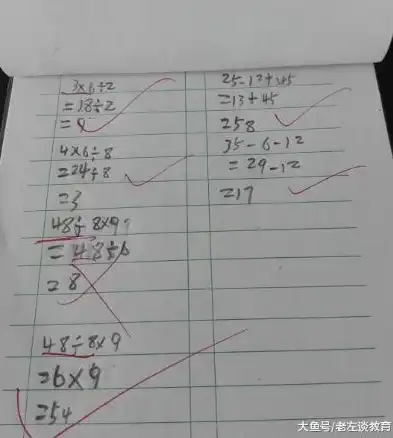 3×6÷2
=18÷2
=9
4×6÷8
=24÷8
=3
48÷8×9
=48÷6
=8
48÷8×9
=6×9
=54
25-12+45
=13+45
=58
35-6-12
=29-12
=17
大鱼号/老左谈教育